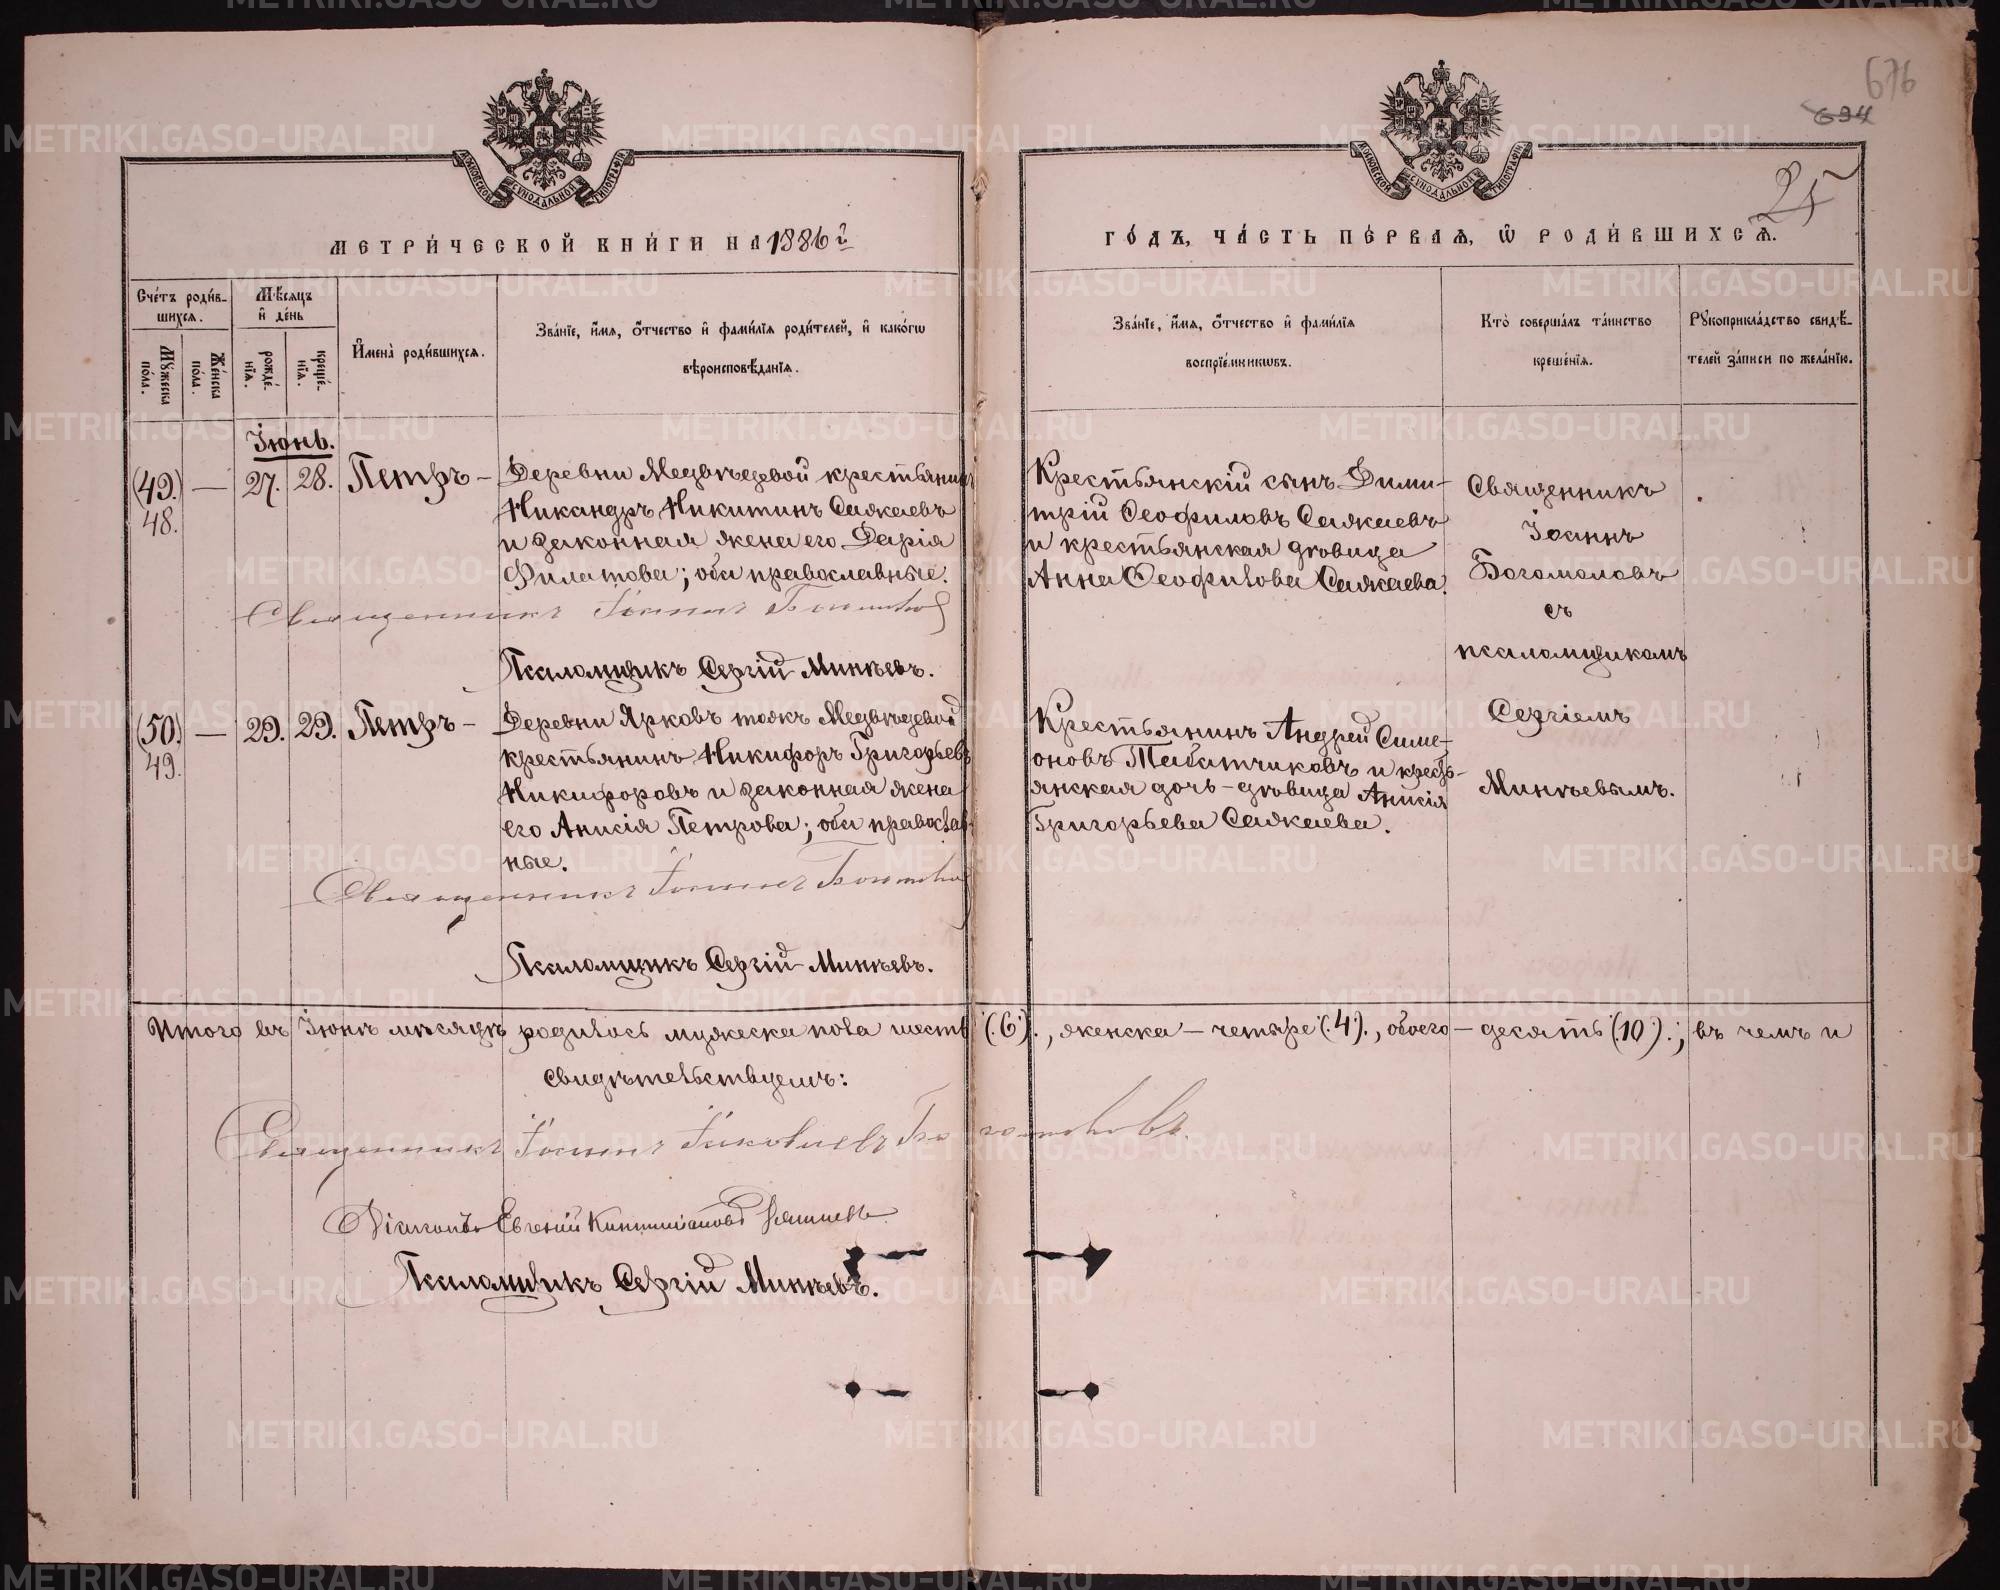 676
694
25
МОСКОВСКОЙ СУНОДАЛЬНОЙ ТИПОГРАФІИ
МОСКОВСКОЙ СУНОДАЛЬНОЙ ТИПОГРАФІИ
МЕТРИ́ЧЕСКОЙ КНИ́ГИ НА 1886 й
ГО́ДЪ, ЧА́СТЬ ПЕ́РВАЯ, Ѡ РОДИ́ВШИХСЯ.
Сче́тъ роди́в-
шихся.
Мѣ́сяцъ
и де́нь
Му́жеска
по́ла.
Же́нска
по́ла.
рожде́-
нія.
креще́-
нія.
Имена̀ роди́вшихся.
Зва́ніе, и́мя, о́тчество и фами́лія роди́телей, и како́гѡ
вѣроисповѣ́данія.
Зва́ніе, и́мя, о́тчество и фами́лія
воспріе́мникѡвъ.
Кто̀ соверша́лъ та́инство
креще́нія.
Рукоприкла́дство свидѣ́-
телей за́писи по жела́нію.
Іюнь.
(49.)
48.
—
27.
28.
Петръ –
Деревни Медвѣдевой крестьянинъ
Никандръ Никитинъ Сажаевъ
и законная жена его Дарія
Филатова; оба православные.
Священникъ Іоаннъ Богомоловъ
Псаломщикъ Сергій Минѣевъ.
Крестьянскій сынъ Дими-
трій Ѳеофиловъ Сажаевъ
и крестьянская дѣвица
Анна Ѳеофилова Сажаева.
Священникъ
Іоаннъ
Богомоловъ
съ
псаломщикомъ
Сергіемъ
Минѣевымъ.
(50.)
49.
—
29.
29.
Петръ –
Деревни Ярковъ тожъ Медвѣдевой
крестьянинъ Никифоръ Григорьевъ
Никифоровъ и законная жена
его Анисія Петрова; оба православ-
ные.
Священникъ Іоаннъ Богомоловъ
Псаломщикъ Сергій Минѣевъ.
Крестьянинъ Андрей Симе-
оновъ Табатчиковъ и кресть-
янская дочь – дѣвица Анисія
Григорьева Сажаева.
Итого въ Іюнѣ мѣсяцѣ родилось мужеска пола шесть (.6)., женска – четыре (.4)., обоего – десять (.10).; въ чемъ и
свидѣтельствуемъ:
Священникъ Іоаннъ Іаковлевъ Богомоловъ.
Діаконъ Евгеній
Псаломщикъ Сергій Минѣевъ.
METRIKI.GASO-URAL.RU